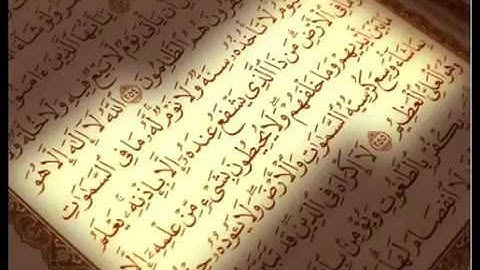 يَٰٓأَيُّهَا الَّذِينَ ءَامَنُوٓا
يَأْتِىَ يَوْمٌ لَّا بَيْعٌ فِيهِ وَلَا خُلَّةٌ وَلَا
هُمُ الظَّٰلِمُونَ ﴿٢٥٤﴾ اللَّهُ لَآ إِلَٰهَ إِلَّا هُوَ
لَا تَأْخُذُهُۥ سِنَةٌ وَلَا نَوْمٌ لَّهُۥ مَا فِى السَّمَٰوَٰتِ
الْأَرْضِ مَن ذَا الَّذِى يَشْفَعُ عِندَهُۥٓ إِلَّا بِإِذْنِهِۦ يَعْلَمُ
أَيْدِيهِمْ وَمَا خَلْفَهُمْ وَلَا يُحِيطُونَ بِشَىْءٍ مِّنْ عِلْمِهِۦٓ إِلَّا
شَآءَ وَسِعَ كُرْسِيُّهُ السَّمَٰوَٰتِ وَالْأَرْضَ وَلَا يَـُٔودُهُۥ
وَهُوَ الْعَلِىُّ الْعَظِيمُ ﴿٢٥٥﴾ لَآ إِكْرَاهَ فِى الدِّينِ قَد تَّبَيَّنَ
يَكْفُرْ بِالطَّٰغُوتِ وَيُؤْمِنۢ بِاللَّهِ
لَا انفِصَامَ لَهَا